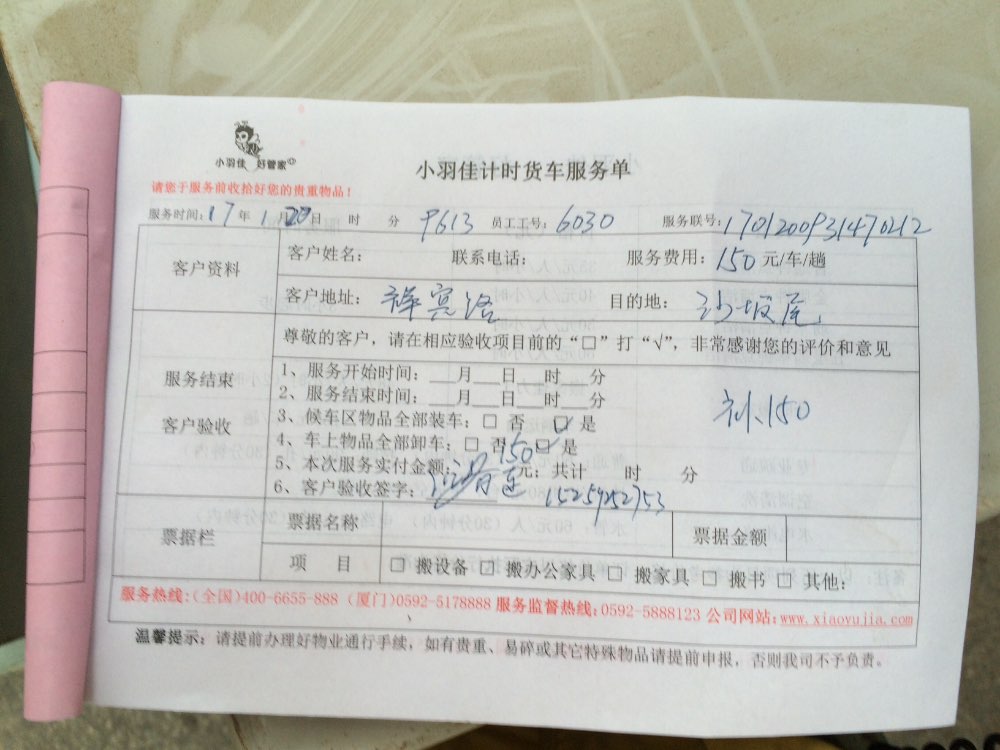 小羽佳 好管家
小羽佳计时货车服务单
请您于服务前收拾好您的贵重物品！
服务时间：17年1月20日 时 分 9613 员工工号：6030 服务联号：1701200931470212
客户资料
客户姓名： 联系电话： 服务费用：150元/车/趟
客户地址： 宾 目的地：沙坡尾
尊敬的客户，请在相应验收项目前的“□”打“√”，非常感谢您的评价和意见
服务结束
客户验收
1、服务开始时间：___月___日___时___分
2、服务结束时间：___月___日___时___分
3、候车区物品全部装车：□ 否 □ 是
4、车上物品全部卸车：□ 否 □ 是
5、本次服务实付金额：150元；共计 时 分
6、客户验收签字： 15259252753
150
票据栏
票据名称 票据金额
项 目 □ 搬设备 □ 搬办公家具 □ 搬家具 □ 搬书 □ 其他：
服务热线：(全国)400-6655-888 (厦门)0592-5178888 服务监督热线：0592-5888123 公司网站：www.xiaoyujia.com
温馨提示：请提前办理好物业通行手续，如有贵重、易碎或其它特殊物品请提前申报，否则我司不予负责。